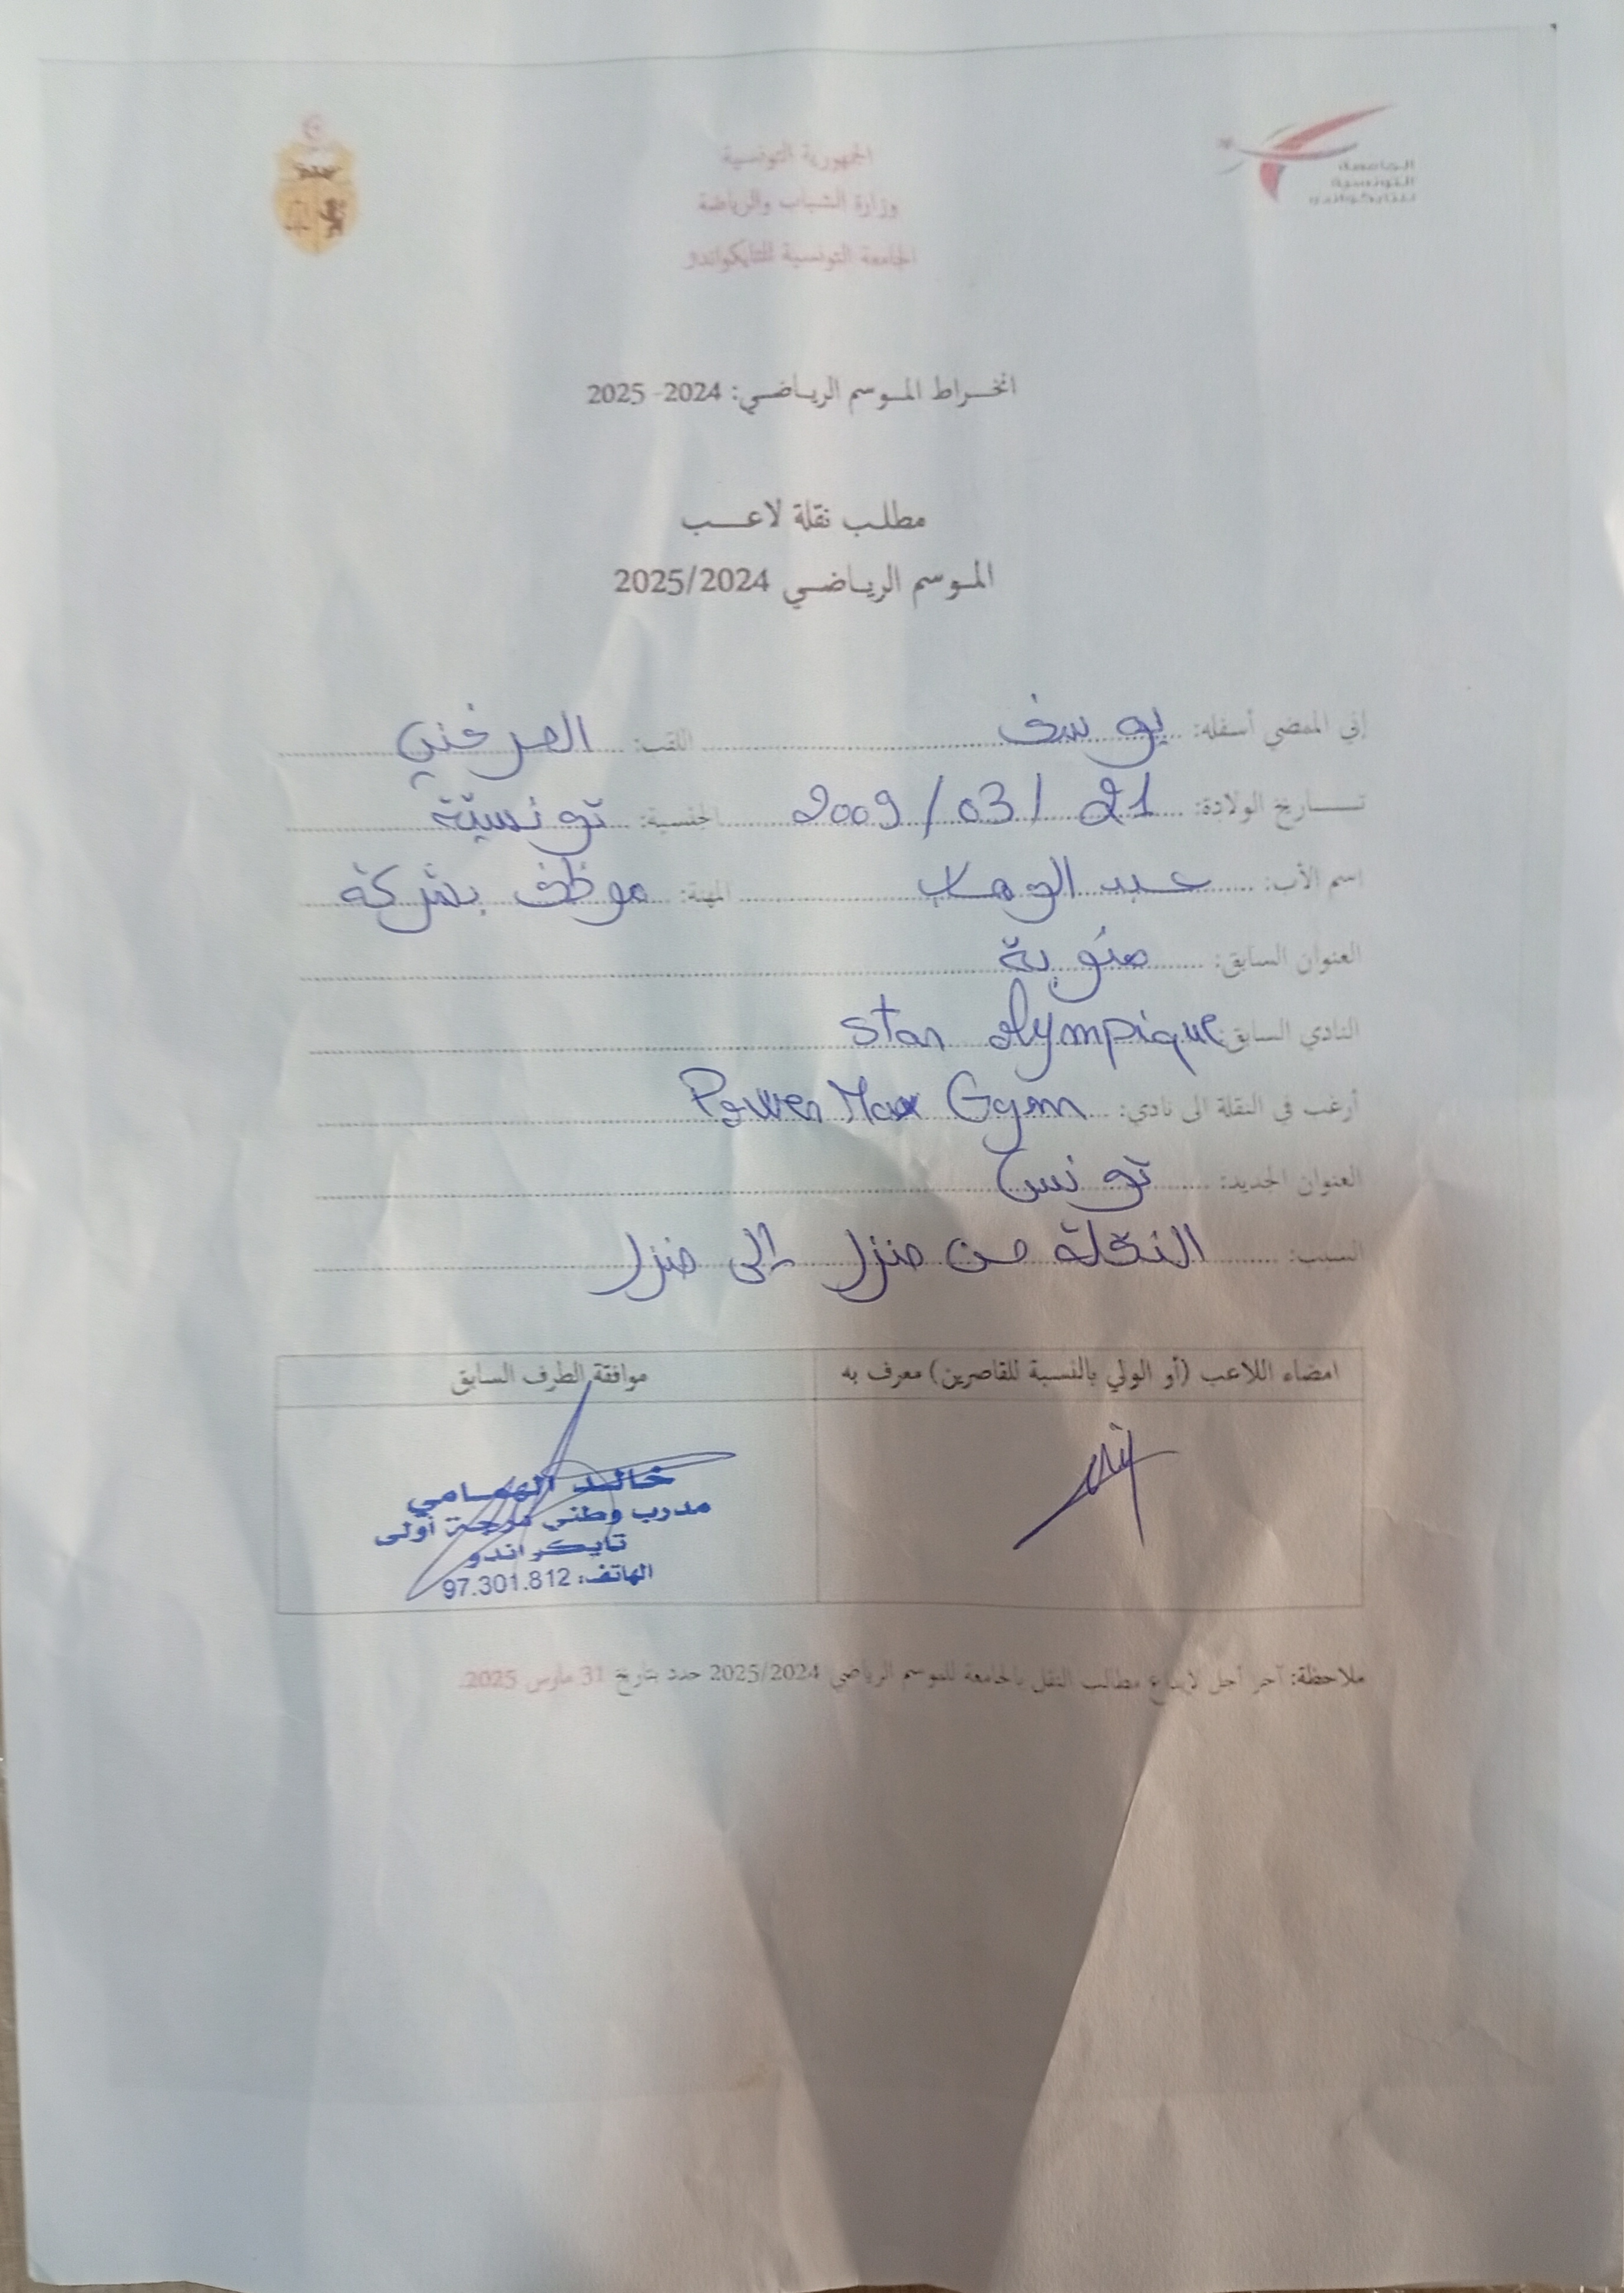 الجمهورية التونسية
وزارة الشباب والرياضة
الجامعة التونسية للتايكواندو
الجامعة
التونسية
للتايكواندو
انخراط الموسم الرياضي: 2024- 2025
مطلب نقلة لاعب
الموسم الرياضي 2025/2024
إني الممضي أسفله: يوسف اللقب:
تاريخ الولادة: 21 / 03 / 2009 الجنسية: تونسيّة
اسم الأب: عبد الوهاب المهنة: موظف بشركة
العنوان السابق: منوبة
النادي السابق: Star olympique
أرغب في النقلة الى نادي: Power Max Gym
العنوان الجديد: تونس
السبب: النقلة من منزل إلى منزل
امضاء اللاعب (أو الولي بالنسبة للقاصرين) معرف به
موافقة الطرف السابق
خالد الهمامي
مدرب وطني درجة أولى
تايكواندو
الهاتف: 97.301.812
ملاحظة: آخر أجل لإيداع مطالب النقل بالجامعة للموسم الرياضي 2025/2024 حدد بتاريخ 31 مارس 2025.